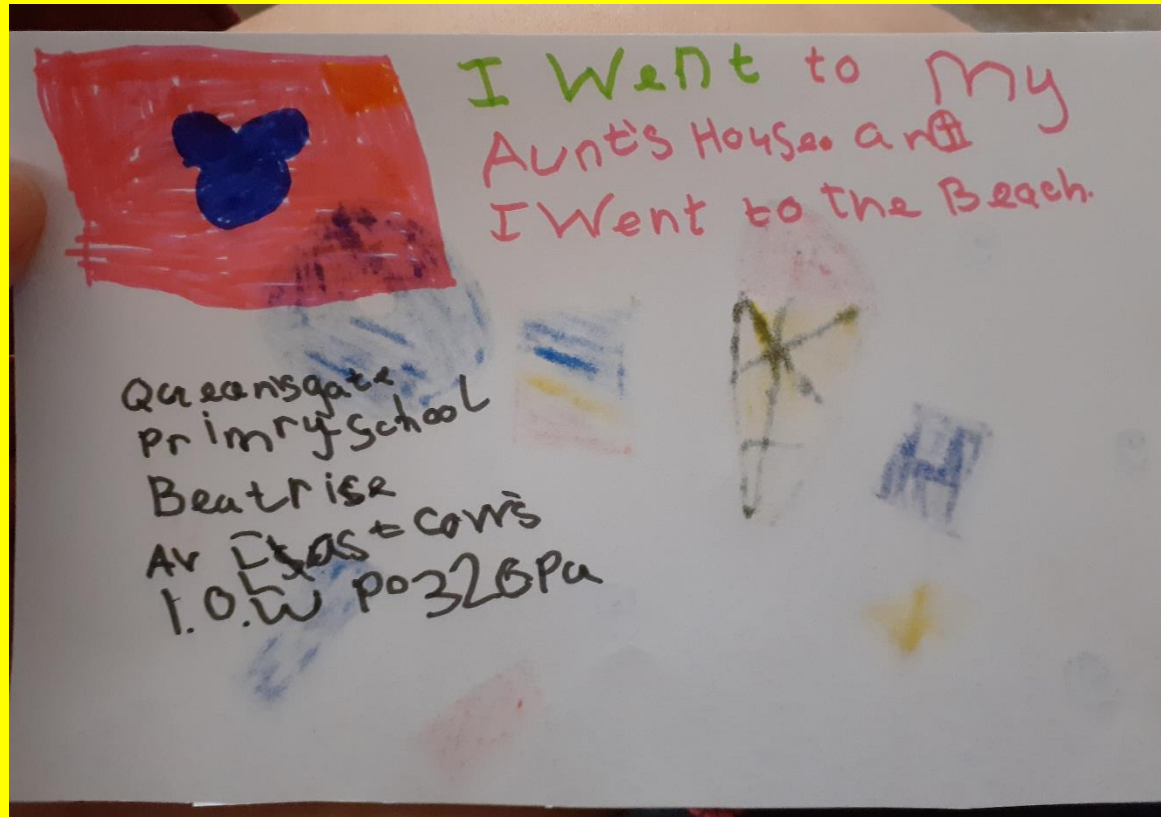 I Went to My
Aunt's House. and
I Went to the Beach.
Queensgate
Primry School
Beatrise
Av East Cows
I.O.W PO326Pa